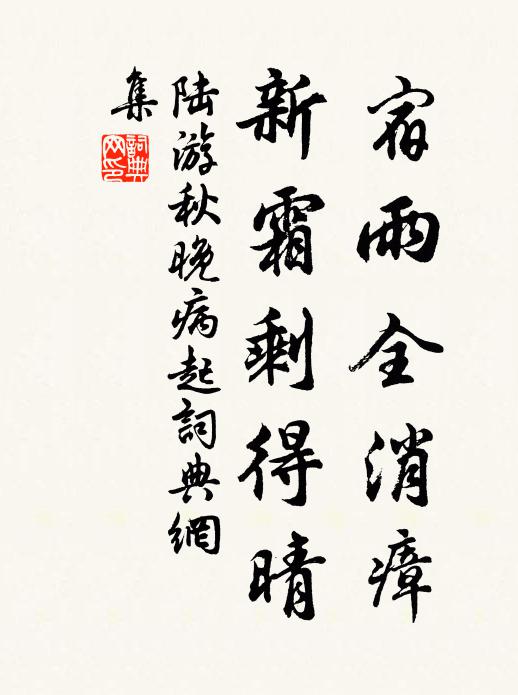 宿雨全消瘴
新霜剩得晴
陸游秋晚病起詞典網
集
詞典
网印